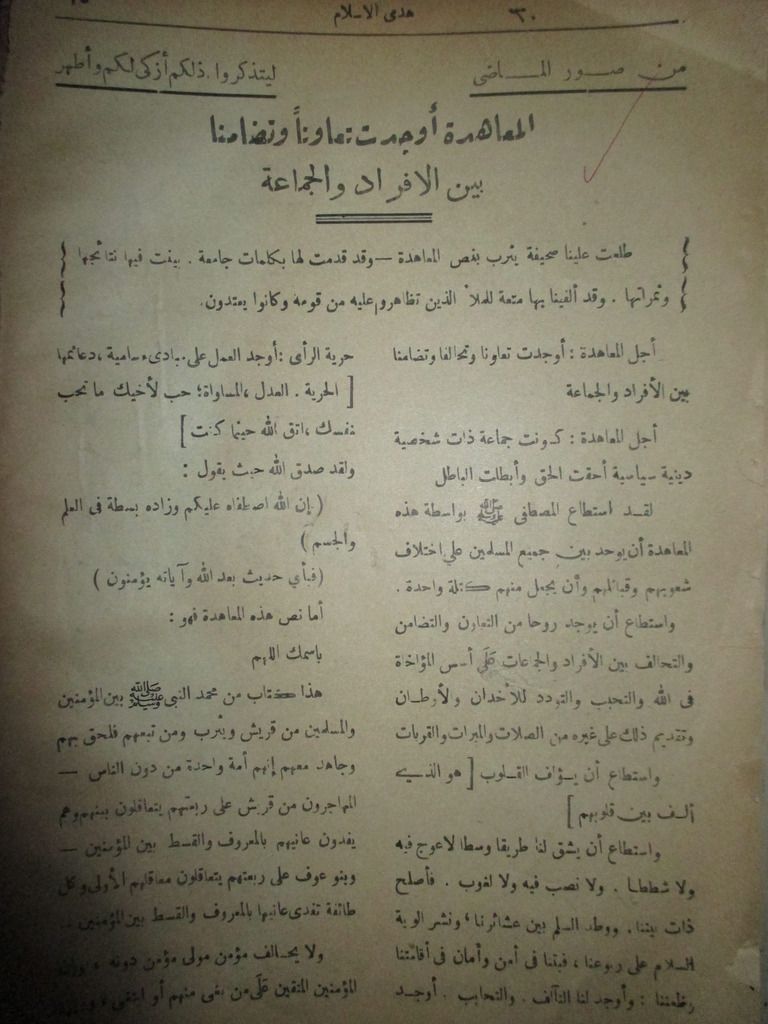 ٣٠
هدى الاسلام
من صور الماضى
ليتذكروا. ذلكم أزكى لكم وأطهر
المعاهدة أوجدت تعاوناً وتضامنا
بين الافراد والجماعة
طلعت علينا صحيفة يثرب بنص المعاهدة — وقد قدمت لها بكلمات جامعة . بينت فيها نتائجها
وثمراتها . وقد ألفينا بها متعة للملأ الذين تظاهروا عليه من قومه وكانوا يعتدون.
أجل المعاهدة : أوجدت تعاونا وتحالفا وتضامنا
بين الأفراد والجماعة
أجل المعاهدة : كونت جماعة ذات شخصية
دينية سياسية أحقت الحق وأبطلت الباطل
لقد استطاع المصطفى ﷺ بواسطة هذه
المعاهدة أن يوحد بين جميع المسلمين على اختلاف
شعوبهم وقبائلهم وأن يجعل منهم كتلة واحدة .
واستطاع أن يوجد روحا من التعاون والتضامن
والتحالف بين الأفراد والجماعات على أسس المؤاخاة
فى الله والتحبب والتودد للأخدان والأوطان
وتقديم ذلك على غيره من الصلات والمبرات والقربات
واستطاع أن يؤلف القلوب [ هو الذى
ألف بين قلوبهم ]
واستطاع أن يشق لنا طريقا وسطا لا عوج فيه
ولا شططا . ولا نصب فيه ولا لغوب . فأصلح
ذات بيننا . ووطد السلم بين عشائرنا ، ونشر الوية
السلام على ربوعنا ، فبتنا فى أمن وأمان فى أقامتنا
وظعننا : وأوجد لنا التآلف . والتحابب . أوجد
حرية الرأى : أوجد العمل على مبادىء سامية ، دعائمها
[ الحرية . العدل ، المساواة ؛ حب لأخيك ما تحب
لنفسك ، اتق الله حيثما كنت ]
ولقد صدق الله حيث يقول :
(إن الله اصطفاه عليكم وزاده بسطة فى العلم
والجسم )
(فبأي حديث بعد الله وآياته يؤمنون )
أما نص هذه المعاهدة فهو :
باسمك اللهم
هذا كتاب من محمد النبي ﷺ بين المؤمنين
والمسلمين من قريش ويثرب ومن تبعهم فلحق بهم
وجاهد معهم إنهم أمة واحدة من دون الناس —
المهاجرون من قريش على ربعتهم يتعاقلون بينهم وهم
يفدون عانيهم بالمعروف والقسط بين المؤمنين —
وبنو عوف على ربعتهم يتعاقلون معاقلهم الأولى وكل
طائفة تفدى عانيها بالمعروف والقسط بين المؤمنين .
ولا يحالف مؤمن مولى مؤمن دونه ، وإن
المؤمنين المتقين على من بغى منهم أو ابتغى